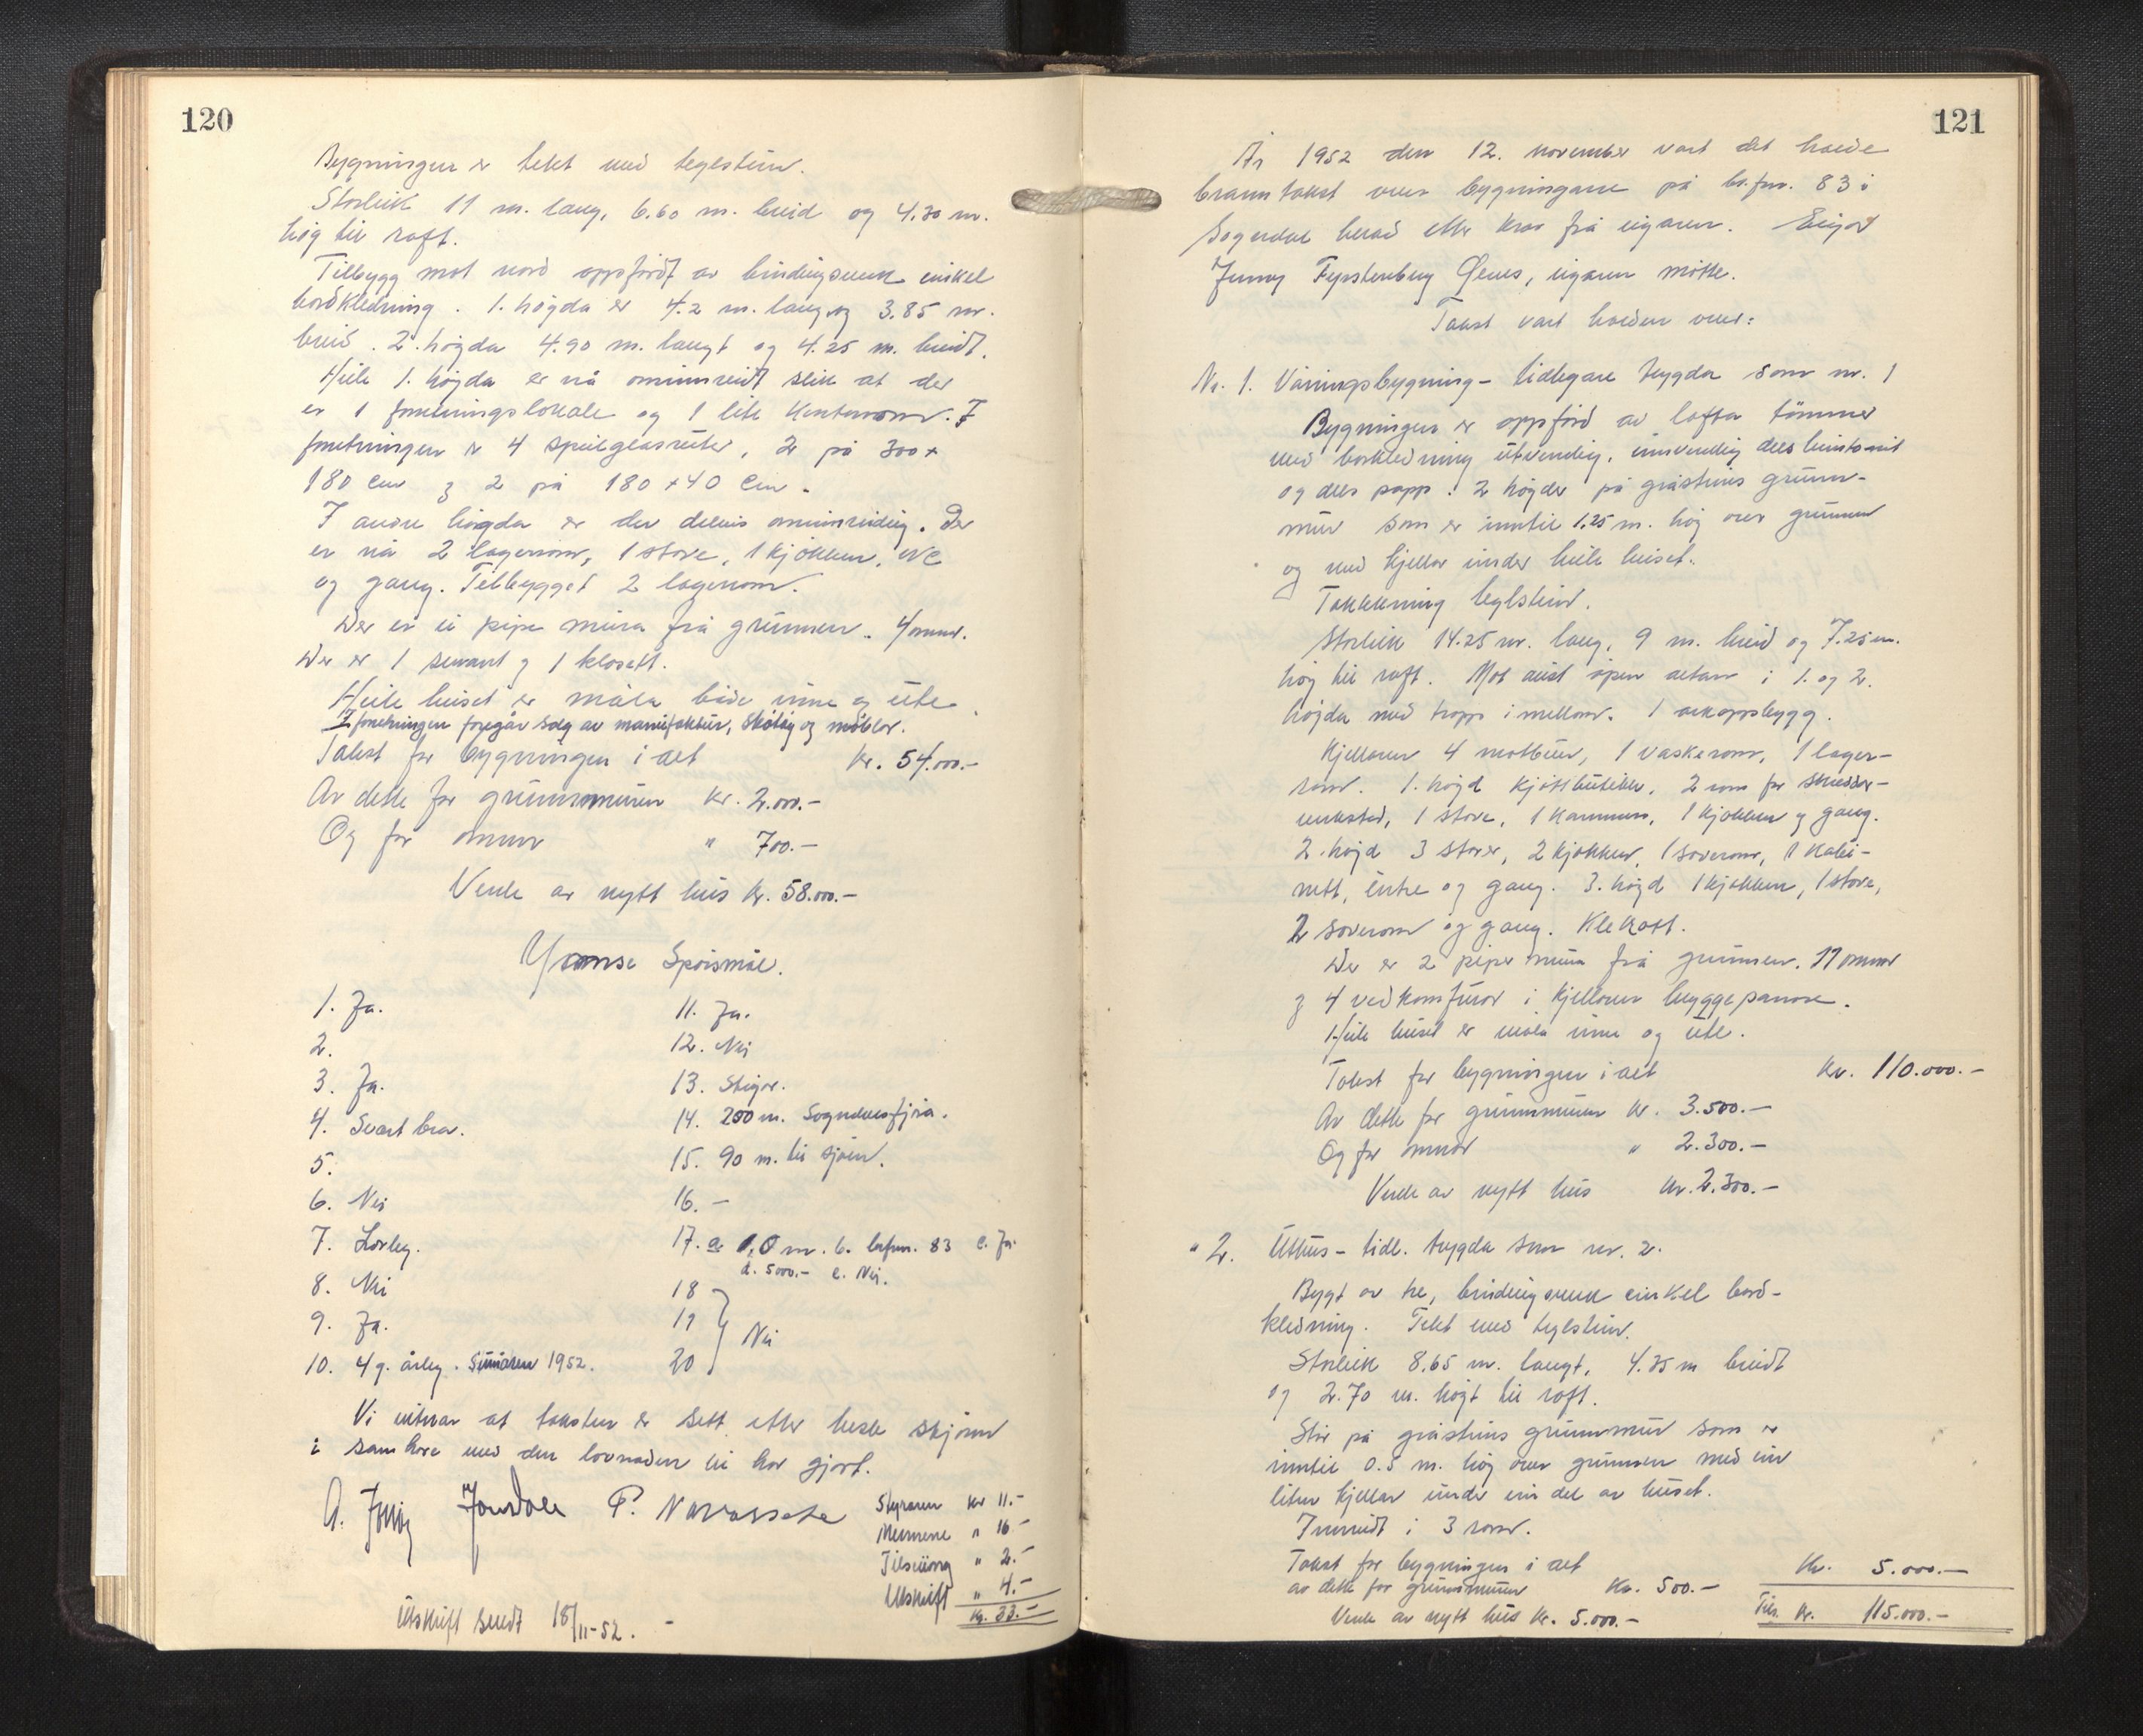 120
Bygningen er tekt med teglstein.
Storleik 11 m. lang, 6.60 m. breid og 4.30 m.
høg til raft.
Tilbygg mot nord oppført av bindingsverk enkel
bordkledning. 1. høgda er 4.2 m. lang og 3.85 m.
breid. 2. høgda 4.90 m. langt og 4.25 m. breidt.
Heile 1. høgda er nå ominnreidt slik at der
er 1 forretningslokale og 1 lite kontorrom. I
forretningen er 4 speilglasruter, 2 på 300 x
180 cm og 2 på 180 x 40 cm.
I andre høgda er der delvis ominnreiding. Der
er nå 2 lagerrom, 1 stove, 1 kjøkken, WC
og gang. Tilbygget 2 lagerrom.
Der er ei pipe mura frå grunnen. 4 omnar.
Der er 1 servant og 1 klosett.
Heile huset er måla både inne og ute.
I forretningen foregår salg av manufaktur, skotøy og møblar.
Takst for bygningen i alt kr. 54.000.-
Av dette for grunnmuren kr. 2.000.-
Og for omnar " 700.-
Verde av nytt hus kr. 58.000.-
Ymse Spørsmål.
1. Ja.
2.
3. Ja.
4. Svært bra.
5.
6. Nei
7. Lovleg.
8. Nei
9. Ja.
10. 4 g. årleg. Sumaren 1952.
11. Ja.
12. Nei
13. Stigar.
14. 200 m. Sogndalsfjøra.
15. 90 m. til sjøen.
16. -
17. a. 1,0 m. b. br.fnr. 83 c. Ja.
d. 5000.- e. Nei.
18
19 Nei
20
Vi vitnar at taksten er sett etter beste skjønn
i samhøve med den lovnaden vi har gjort.
P. Navarsete
Styraren kr 11.-
Mennene " 16.-
Tilsuting " 2.-
Utskrift " 4.-
Kr. 33.-
Utskrift sendt 18/11-52.
121
År 1952 den 12. november vart det halde
branntakst over bygningane på br.fnr. 83 i
Sogndal herad etter krav frå eigaren. Eigar
Jenny Fyrstenberg Øens, eigaren møtte.
Takst vart halden over:
Nr. 1. Våningsbygning - tidlegare trygda som nr. 1
Bygningen er oppførd av lafta tømmer
med bordkledning utvendig, innvendig dels huntonit
og dels papp. 2 høgder på gråsteins grunn-
mur som er inntil 1.25 m. høg over grunnen
og med kjellar under heile huset.
Taktekning teglstein.
Storleik 14.25 m. lang, 9 m. breid og 7.25 m.
høg til raft. Mot aust open altan i 1. og 2.
høgda med tropp imellom. 1 arkoppbygg.
Kjellaren 4 matbuer, 1 vaskerom, 1 lager-
rom. 1. høgd kjøttbutikk, 2 rom for skredder-
verkstad, 1 stove, 1 kammers, 1 kjøkken og gang.
2. høgd 3 stover, 2 kjøkken, 1 soverom, 1 kabi-
nett, entre og gang. 3. høgd 1 kjøkken, 1 stove,
2 soverom og gang. Klekott.
Der er 2 piper mura frå grunnen. 17 omnar
og 4 vedkomfurar i kjellaren bryggepanne.
Heile huset er måla inne og ute.
Takst for bygningen i alt kr. 110.000.-
Av dette for grunnmuren kr. 3.500.-
Og for omnar " 2.300.-
Verde av nytt hus kr. 2.300.-
" 2. Uthus - tidl. trygda som nr. 2.
Bygt av tre, bindingsverk enkel bord-
kledning. Tekt med teglstein.
Storleik 8.65 m. langt, 4.35 m breidt
og 2.70 m. høgt til raft.
Står på gråsteins grunnmur som er
inntil 0.5 m. høg over grunnen med ein
liten kjellar under ein del av huset.
Innreidt i 3 rom.
Takst for bygningen i alt Kr. 5.000.-
av dette for grunnmuren Kr. 500.-
Verde av nytt hus kr. 5.000.-
Tils. kr. 115.000.-